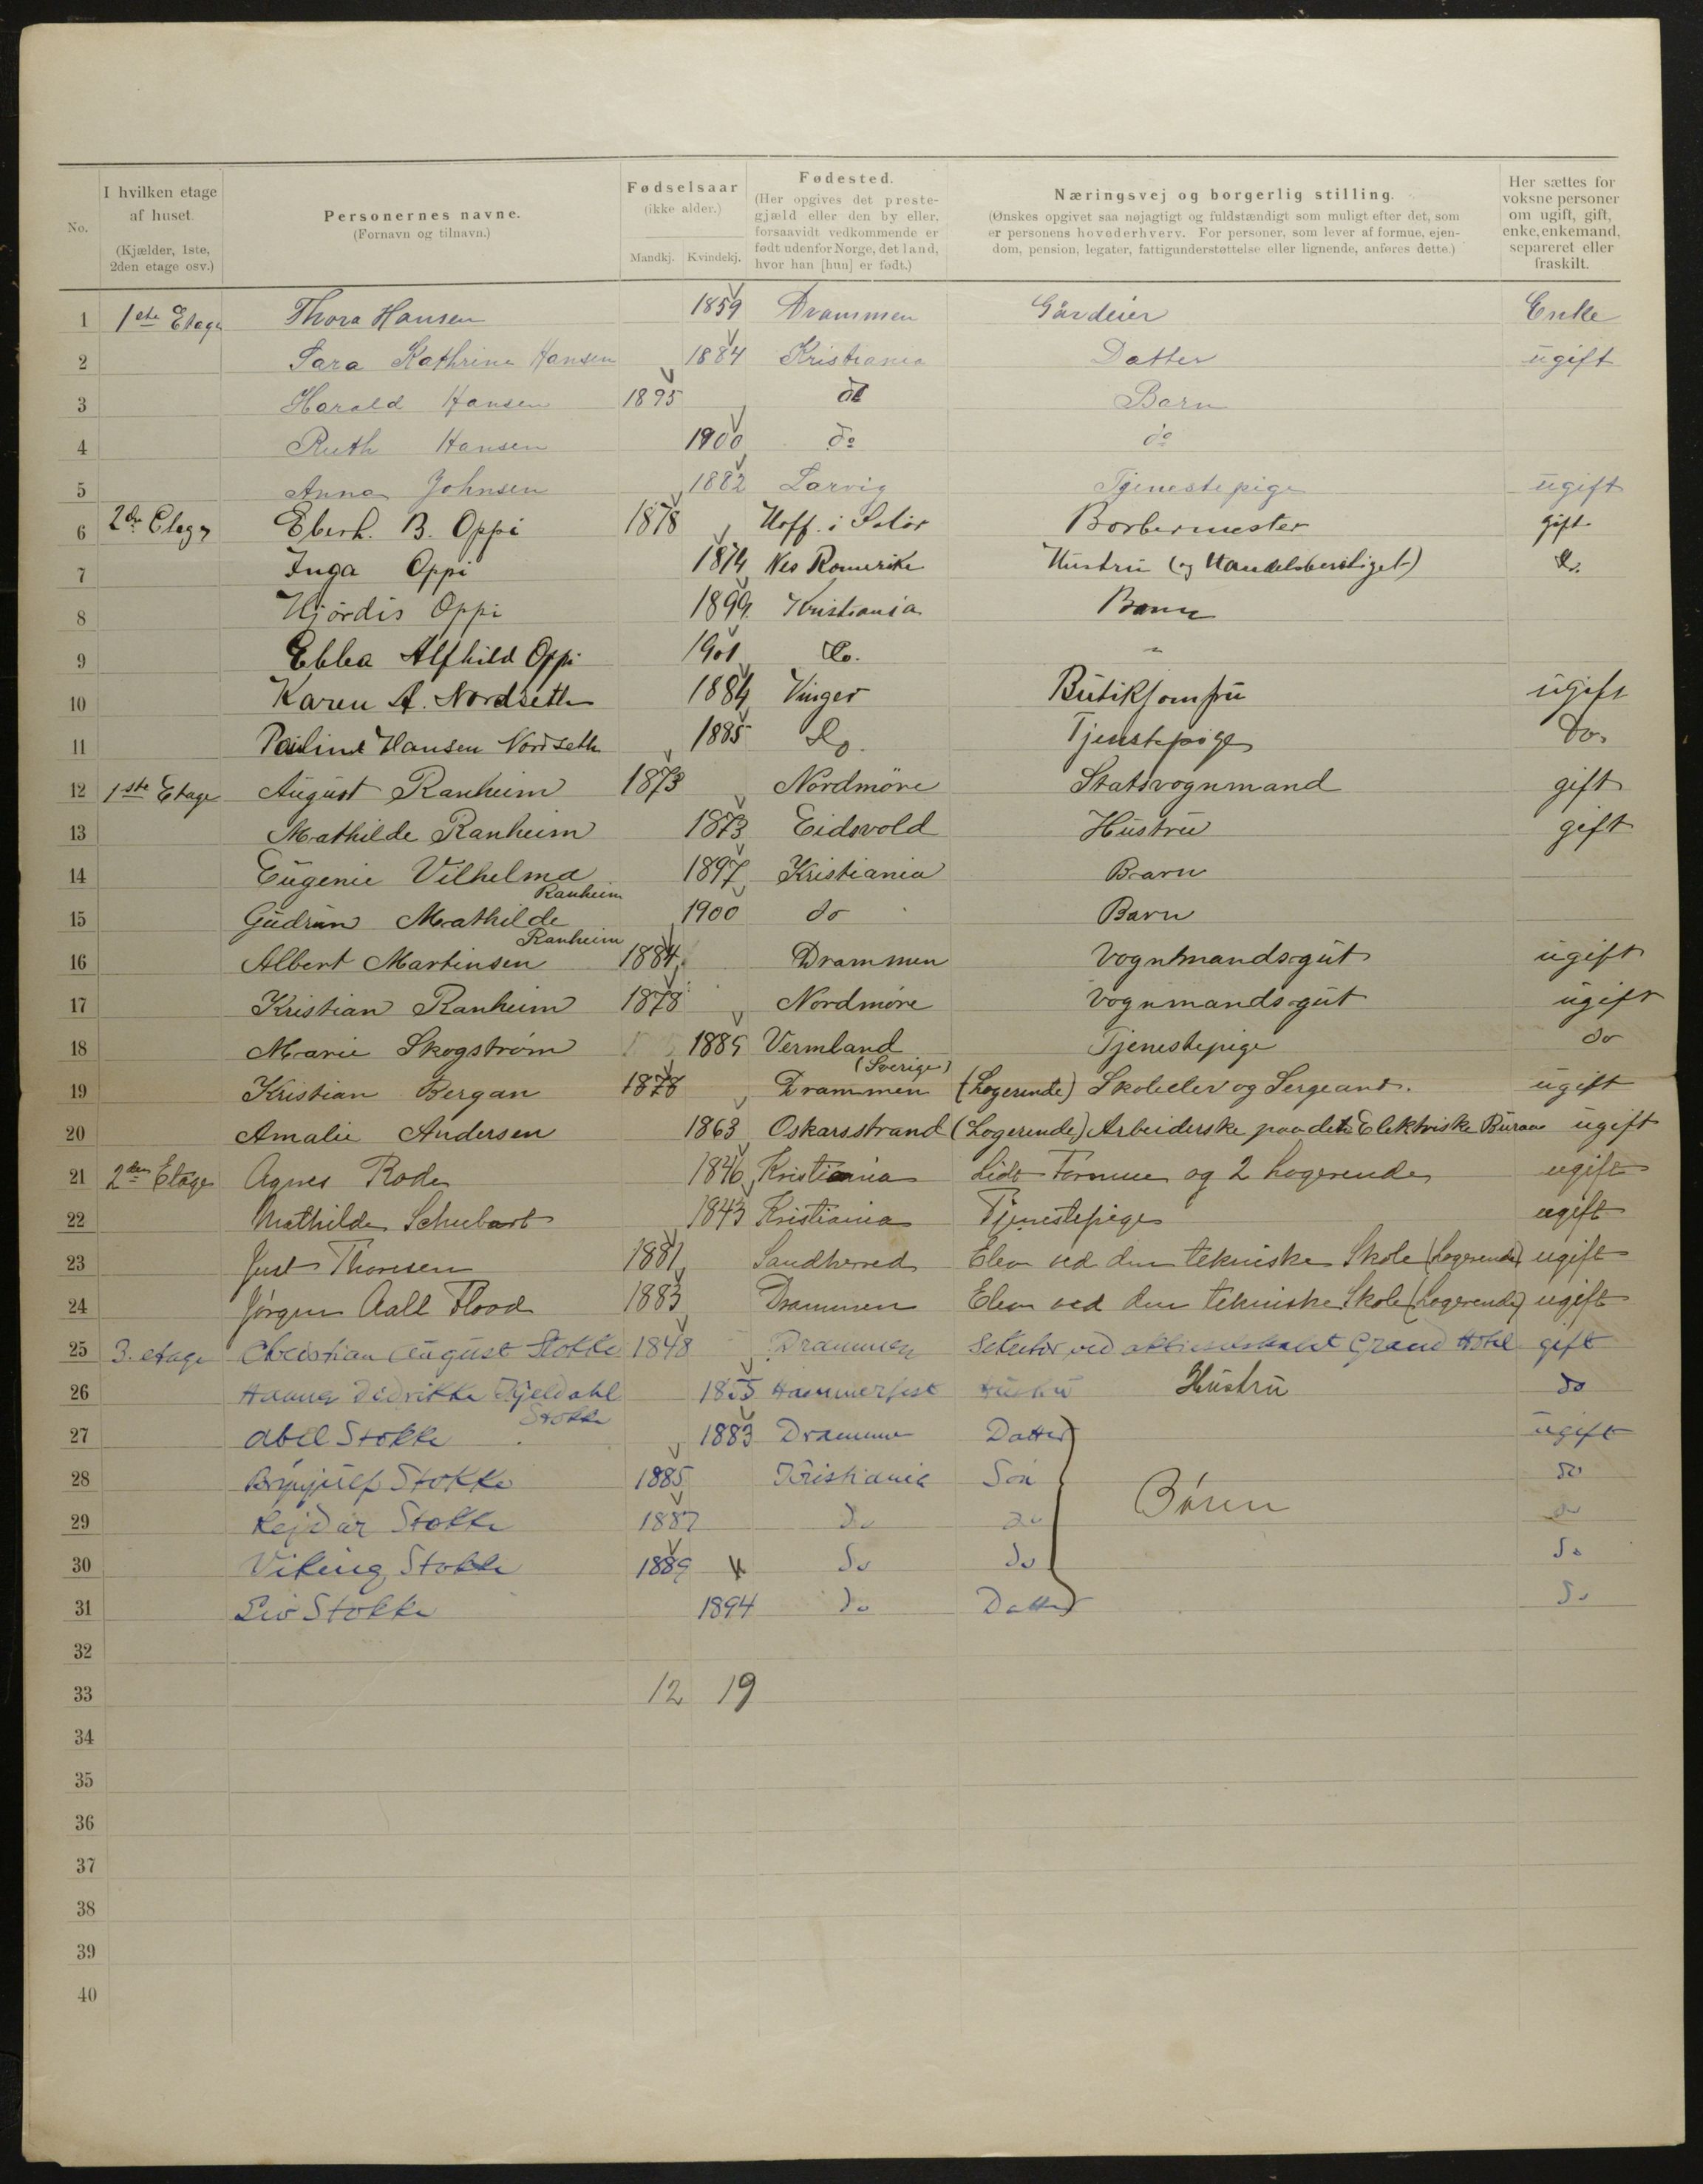 No.
I hvilken etage
af huset.
(Kjælder, 1ste,
2den etage osv.)
Personernes navne.
(Fornavn og tilnavn.)
Fødselsaar
(ikke alder.)
Mandkj. Kvindekj.
Fødested.
(Her opgives det preste-
gjæld eller den by eller,
forsaavidt vedkommende er
født udenfor Norge, det land,
hvor han [hun] er født.)
Næringsvej og borgerlig stilling.
(Ønskes opgivet saa nøjagtigt og fuldstændigt som muligt efter det, som
er personens hovederhverv. For personer, som lever af formue, ejen-
dom, pension, legater, fattigunderstøttelse eller lignende, anføres dette.)
Her sættes for
voksne personer
om ugift, gift,
enke, enkemand,
separeret eller
fraskilt.
1 1ste Etage Thora Hansen 1859 Drammen Gårdeier Enke
2 Sara Kathrine Hansen 1884 Kristiania Datter ugift
3 Harald Hansen 1895 do Barn
4 Ruth Hansen 1900 do do
5 Anna Johnsen 1882 Larvig Tjenestepige ugift
6 2den Etage Eberh. B. Oppi 1878 Hoff. i Solør Barbermester gift
7 Inga Oppi 1874 Nes Romerike Hustru (og Handelsberetiget) do.
8 Hjördis Oppi 1899 Kristiania Barn
9 Ebba Alfhild Oppi 1901 Do. "
10 Karen A. Nordseth 1884 Vinger Butikjomfru ugift
11 Pauline Hansen Nordseth 1885 Do. Tjenstepige do.
12 1ste Etage August Ranheim 1873 Nordmøre Statsvognmand gift
13 Mathilde Ranheim 1873 Eidsvold Hustru gift
14 Eugenie Vilhelma 1897 Kristiania Barn
Ranheim
15 Gudrun Mathilde 1900 do Barn
Ranheim
16 Albert Martinsen 1884 Drammen Vognmandsgut ugift
17 Kristian Ranheim 1878 Nordmøre Vognmandsgut ugift
18 Marie Skogstrøm 1885 Vermland Tjenestepige do
(Sverige)
19 Kristian Bergan 1878 Drammen (Logerende) Skoleelev og Sergeant. ugift
20 Amalie Andersen 1863 Oskarsstrand (Logerende) Arbeiderske paa det Elektriske Bureau ugift
21 2den Etage Agnes Rode 1846 Kristiania Lidt Formue og 2 Logerende ugift
22 Mathilde Schubart 1843 Kristiania Tjenestepige ugift
23 Just Thoresen 1881 Sandherred Elev ved den tekniske Skole (Logerende) ugift
24 Jørgen Aall Flood 1883 Drammen Elev ved den tekniske Skole (Logerende) ugift
25 3. etage Christian August Stokke 1848 Drammen ved aktieselskabet Grand Hotel gift
26 Hanna Didrikke Kjeldahl 1855 Hammerfest Hustru Hustru do
Stokke
27 Abel Stokke 1883 Drammen Datter ugift
28 Brynjulf Stokke 1885 Kristiania Søn do
Børn
29 Rejdar Stokke 1887 do do do
30 Viking Stokke 1889 do do do
31 Liv Stokke 1894 do Datter do
32
33 12 19
34
35
36
37
38
39
40